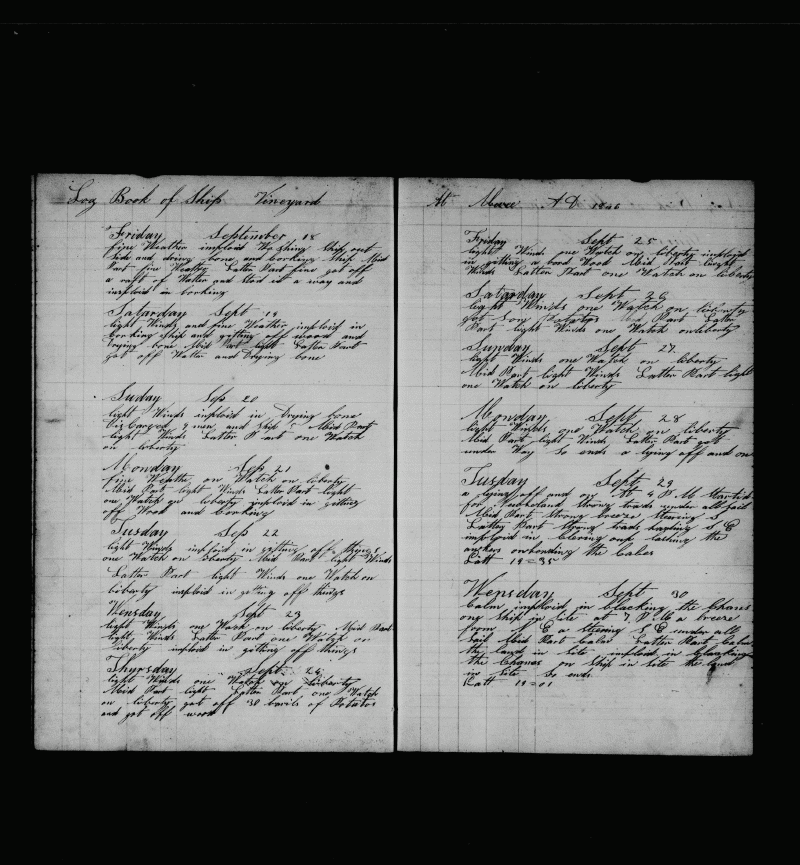 Log Book of Ship Vineyard
Friday September 18
fine Weather imploid Washing Ship out
side and driing bone and Cooking Ship Mid
Part fine Weather Latter Part fine got off
a raft of Watter and Stod it a way and
imploid in Cooking
Satarday Sept 19
light Winds and fine Weather imploid in
Cooking ship and getting off wood and
Drying bone Mid Part light Latter Part
got off Watter and Drying bone
Suday Sep 20
light Winds imploid in Drying bone
Discharged 9 men and Ship Mid Part
light Winds Latter Part one Watch
on liberty
Monday Sep 21
fine Weathr on Watch on liberty
Mid Part light Winds Latter Part light
one Watch on liberty imploid in getting
off Wood and Cooking
Tusday Sep 22
light Winds imploid in getting off things
one Watch on liberty Mid Part light Winds
Latter Part light Winds one Watch on
liberty imploid in geting off things
Wensday Sept 23
light Winds one Watch on liberty Mid Part
light Winds Latter Part one Watch on
liberty imploid in getting off things
Thyrsday Sept 24
light Winds one Watch on liberty
Mid Part light Latter Part one Watch
on liberty got off 30 barils of Potatos
and got off wood
At Mowee AD 1846
Friday Sept 25
light Winds one Watch on liberty imploid
in getting a bord Wood Mid Part light
Winds Latter Part one Watch on liberty
Satarday Sept 26
light Winds one Watch on liberty
got Som Potatos Mid Part Latter
Part light Winds one Watch on liberty
Sunday Sept 27
light Winds one Watch on liberty
Mid Part light Winds Latter Part light
one Watch on liberty
Monday Sept 28
light Winds one Watch on liberty
Mid Part light Winds Latter Part got
under Way So ends a lying off and on
Tusday Sept 29
a lying off and on At 4 PM Started
for strong trads under all sail
Mid Part strong breese steering S
Latter Part strong trads heading S E
imploid in Clearing up lashing the
ankers onbending the Cabes
Latt 19=35
Wensday Sept 30
Calm imploid in blacking the Chanes
one ship in Site at 7 PM a breese
from E a steering S E under all
Sail Mid Part Calm Latter Part Calm
the land in Site imploid in blacking
the Chanes on Ship in Site the land
in Site So ends
Latt 19=01